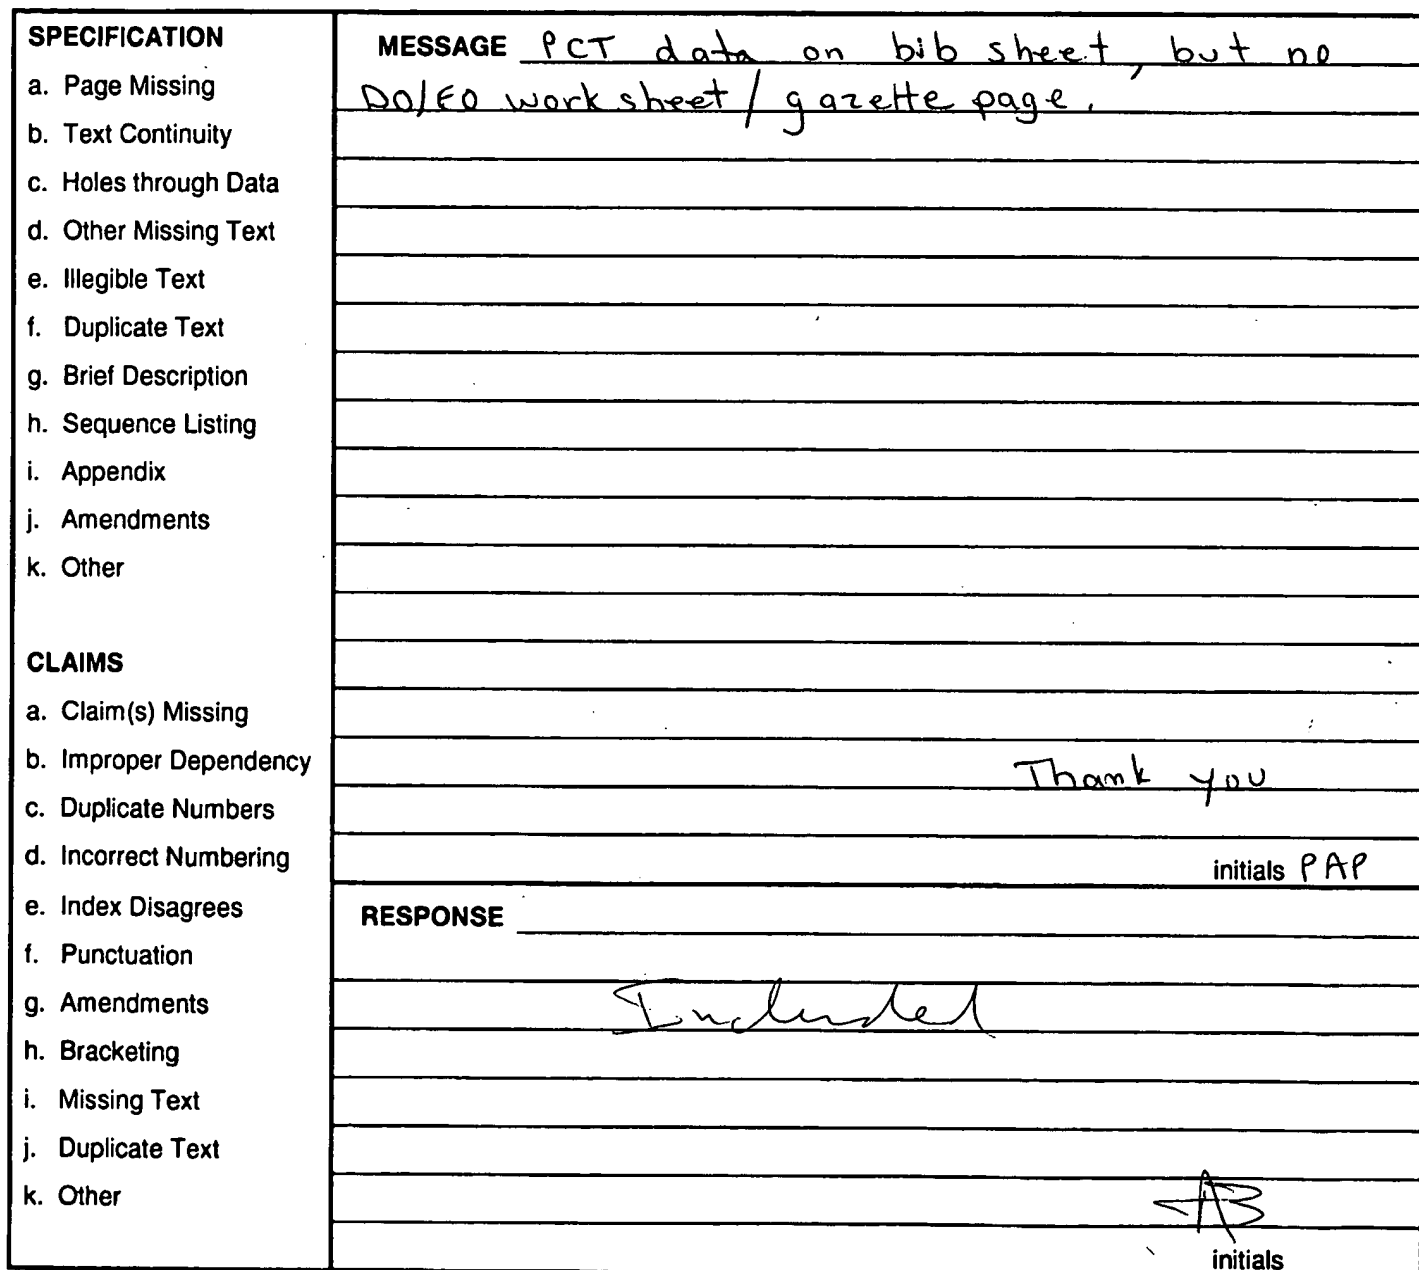 SPECIFICATION
a. Page Missing
b. Text Continuity
c. Holes through Data
d. Other Missing Text
e. Illegible Text
f. Duplicate Text
g. Brief Description
h. Sequence Listing
i. Appendix
j. Amendments
k. Other
CLAIMS
a. Claim(s) Missing
b. Improper Dependency
c. Duplicate Numbers
d. Incorrect Numbering
e. Index Disagrees
f. Punctuation
g. Amendments
h. Bracketing
i. Missing Text
j. Duplicate Text
k. Other
MESSAGE PCT data on bib sheet, but no
DO/EO work sheet / gazette page.
Thank you
initials PAP
RESPONSE
Included
AB
initials